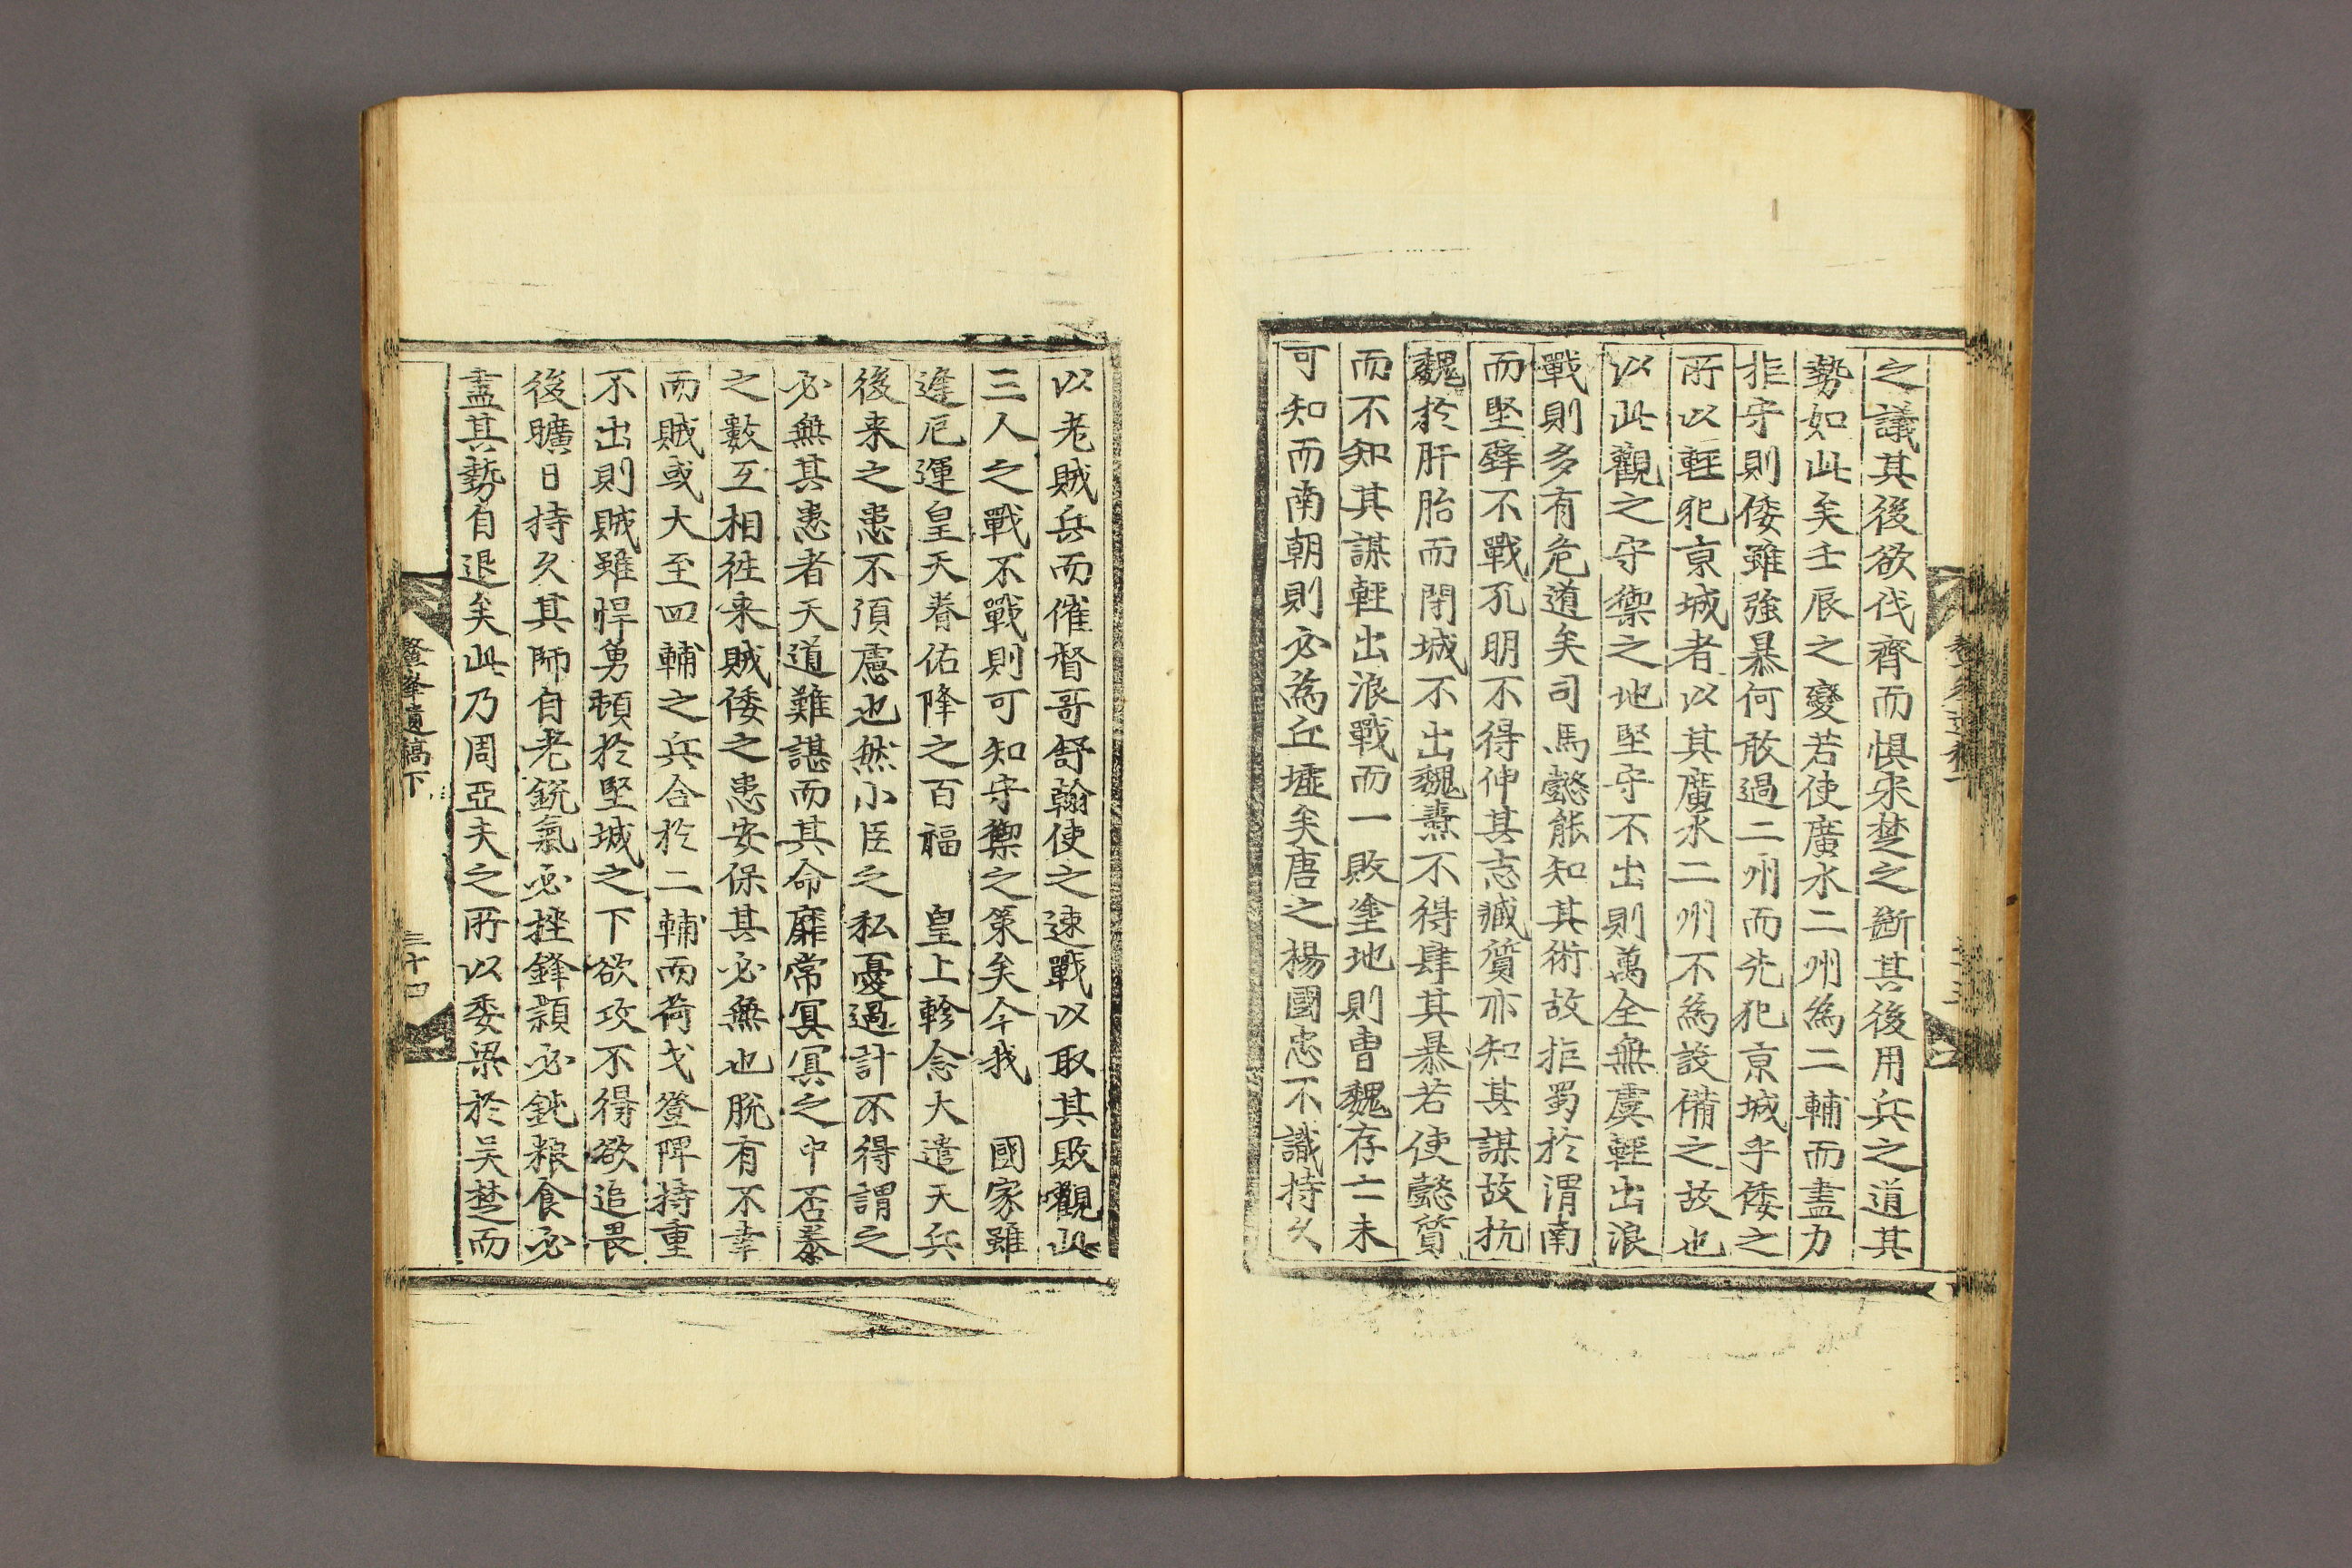 之議其後欲伐齊而惧宋楚之斷其後用兵之道其
勢如此矣壬辰之變若使廣水二州為二輔而盡力
拒守則倭雖強暴何敢過二州而先犯京城乎倭之
所以輕犯京城者以其廣水二州不為設備之故也
以此觀之守禦之地堅守不出則萬全無虞輕出浪
戰則多有危道矣司馬懿能知其術故拒蜀於渭南
而堅壁不戰孔明不得伸其志臧質亦知其謀故抗
魏於肝胎而閉城不出魏燾不得肆其暴若使懿質
而不知其謀輕出浪戰而一敗塗地則曺魏存亡未
可知而南朝則必為丘墟矣唐之楊國忠不識持久
以老賊兵而催督哥舒翰使之速戰以取其敗觀此
三人之戰不戰則可知守禦之策矣今我 國家雖
逢厄運皇天眷佑降之百福 皇上軫念大遣天兵
後来之患不須慮也然小臣之私憂過計不得謂之
必無其患者天道難諶而其命靡常冥冥之中否泰
之數互相徃来賊倭之患安保其必無也脫有不幸
而賊或大至四輔之兵合於二輔而荷戈登陴持重
不出則賊雖悍勇頓於堅城之下欲攻不得欲追畏
後曠日持久其師自老銳氣必挫鋒潁必鈍粮食必
盡其勢自退矣此乃周亞夫之所以委梁於吴楚而
鰲峯遺稿下
三十四